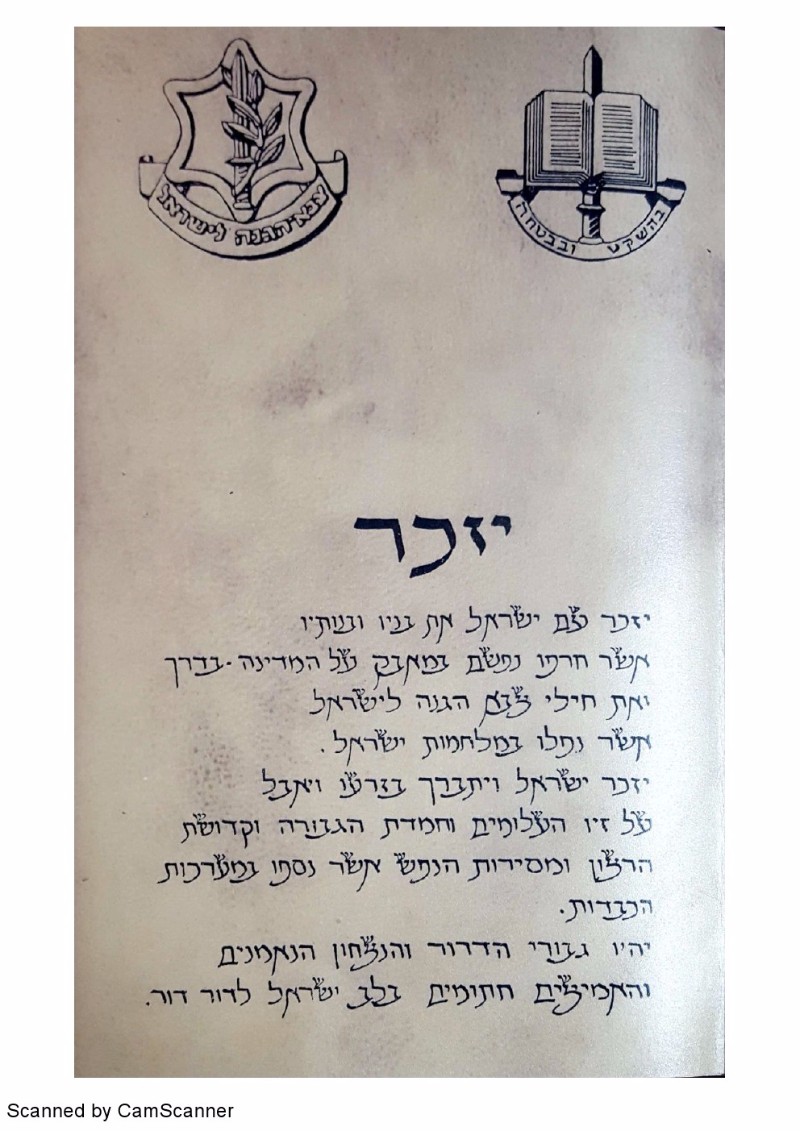 צבא הגנה לישראל
בהשקט ובבטחה
יזכר
יזכר עם ישראל את בניו ובנותיו
אשר חרפו נפשם במאבק על המדינה-בדרך
ואת חילי צבא הגנה לישראל
אשר נפלו במלחמות ישראל.
יזכר ישראל ויתברך בזרעו ויאבל
על זיו העלומים וחמדת הגבורה וקדושת
הרצון ומסירות הנפש אשר נספו במערכות
הכבדות.
יהיו גבורי הדרור והנצחון הנאמנים
והאמיצים חתומים בלב ישראל לדור דור.
Scanned by CamScanner